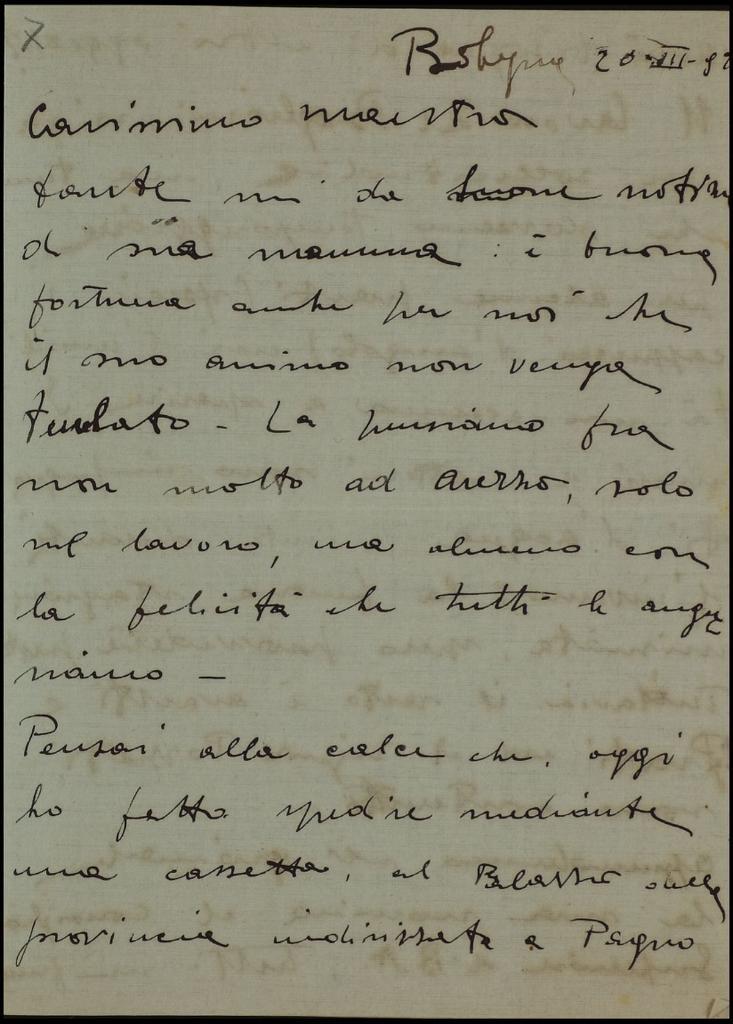 7
Bologna 20-III-9
Carissimo Maestro
tante mi da buone notizie
di sua mamma: è buona
fortuna anche per noi che
il suo animo non venga
turbato - La pensiamo fra
non molto ad Arezzo, solo
nel lavoro, ma almeno con
la felicità che tutti le augu
riamo -
Pensai alla calce che, oggi
ho fatto spedire mediante
una cassetta, al Palazzo della
provincia indirizzata a